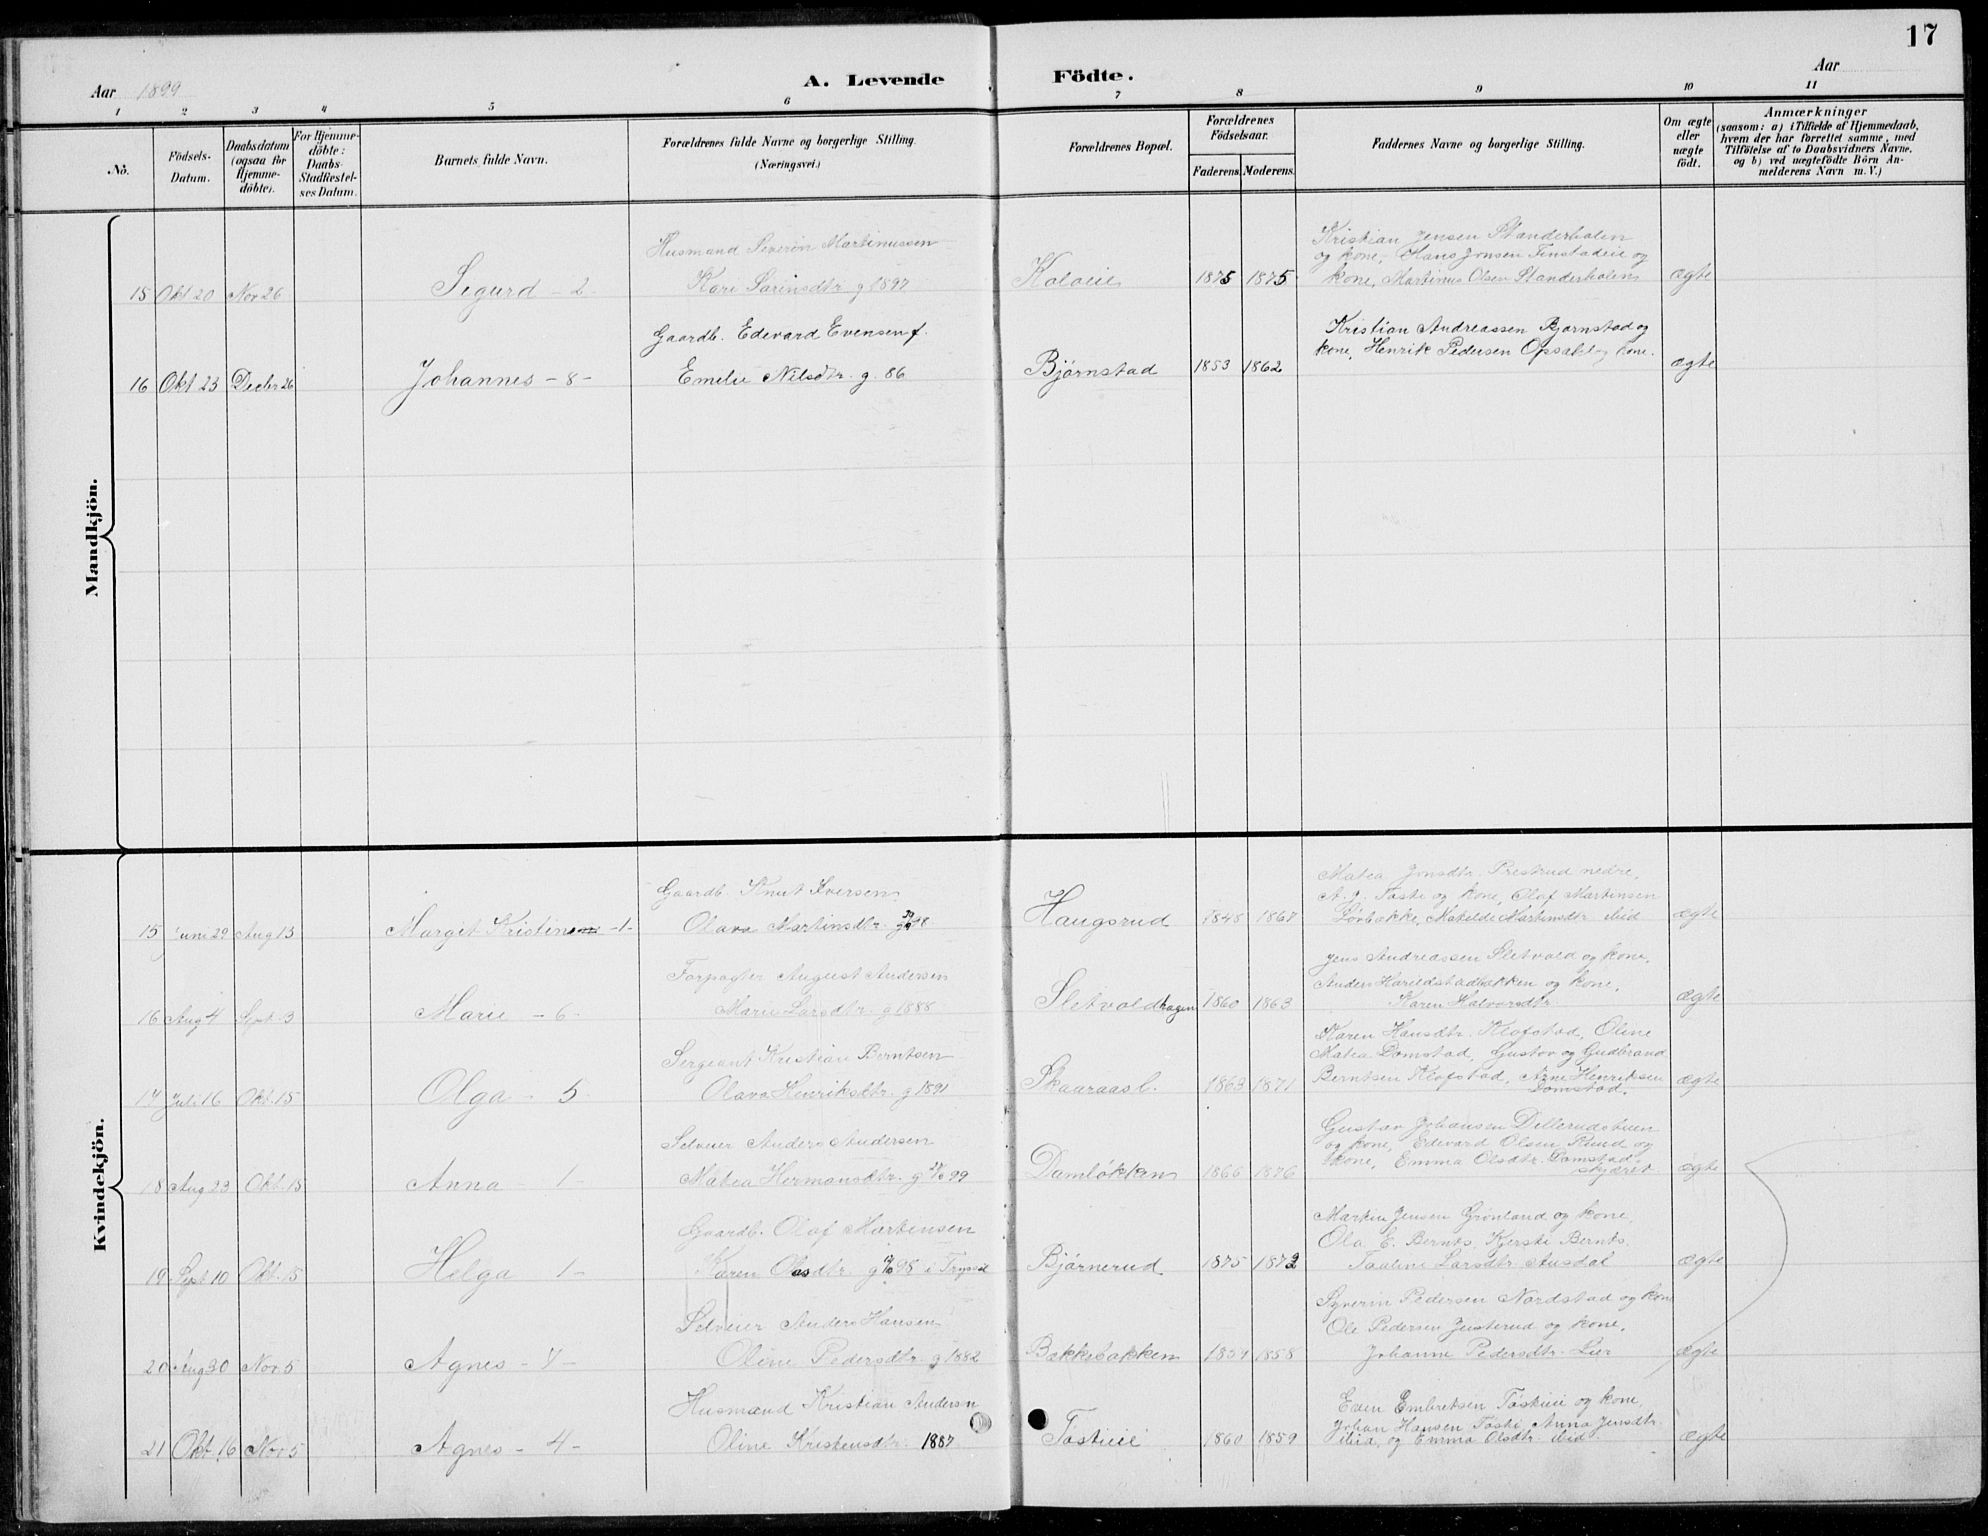 17
Aar 1899
A. Levende Födte.
Aar
1 2 3 4 5 6 7 8 9 10 11
No.
Födsels-
Datum.
Daabsdatum
(ogsaa for
Hjemme-
döbte).
For Hjemme-
döbte:
Daabs-
Stadfæstel-
ses Datum.
Barnets fulde Navn.
Forældrenes fulde Navne og borgerlige Stilling.
(Næringsvei.)
Forældrenes Bopæl.
Forældrenes
Födselsaar.
Faderens. Moderens.
Faddernes Navne og borgerlige Stilling.
Om ægte
eller
uægte
födt.
Anmærkninger
(saasom: a) i Tilfælde af Hjemmedaab,
hvem der har forrettet samme, med
Tilföielse af to Daabsvidners Navne,
og b) ved uægtefödte Börn An-
melderens Navn m. V.)
Mandkjön.
Husmand Severin Martinussen
Kristian Jensen Standerholen
og kone, Hans Jonsen Finstadeie og
15 Okt 20 Nov 26 Sigurd - 2 - Kari Sørinsdtr g 1897 Koloeie 1875 1875 kone, Martinus Olsen Standerholen ægte
Gaardb. Edevard Evensen f.
Kristian Andreassen Bjørnstad og
kone, Henrik Pedersen Opsahl og kone.
16 Okt 23 Decbr 26 Johannes - 8 - Emelie Nilsdtr. g. 86 Bjørnstad 1853 1862 ægte
Kvindekjön.
Gaardb. Knut Iversen
Matea Jonsdtr. Prestrud nedre,
A. J. Tøste og kone, Olaf Martinsen
15 Juni 29 Aug 13 Margit Kristine - 1 - Olava Martinsdtr. 98 Haugsrud 1848 1867 Lørbakke, Mathilde Martinsdtr ibid ægte
Forpagter August Andersen
Jens Andreassen Sletvold og kone,
Anders Hareldstadbakken og kone,
16 Aug 4 Sept. 3 Marie - 6 - Marie Larsdtr. g 1888 Sletvoldhagen 1860 1863 Karen Halvorsdtr. ægte
Sergeant Kristian Berntsen
Karen Hansdtr. Klofstad, Oline
Matea Domstad, Gustav og Gudbrand
17 Juli 16 Okt. 15 Olga - 5 Olava Henriksdtr. g 1891 Skaaraasl. 1863 1871 Berntsen Klofstad, Arne Henriksen ægte
Domstad.
Selveier Anders Andersen
Gustav Johansen Dellerudstuen
og kone, Edevard Olsen Rund og
18 Aug 23 Okt. 15 Anna - 1 - Matea Hermansdtr. g 99 Damløkken 1866 1876 kone, Emma Olsdtr. Domstad- ægte
skjæret
Gaardb. Olaf Martinsen
Martin Jensen Grønland og kone,
Ola E. Bernts, Kjersti Bernts,
19 Sept 10 Okt. 15 Helga 1 - Karen Olasdtr g 98 i Trysil Bjørnerud 1875 1872 Pauline Larsdtr Ausdal ægte
Selveier Anders Hansen
Syverin Pedersen Nordstad og kone
Ole Pedersen Justerud og kone,
20 Aug 30 Nov 5 Agnes - 7 - Oline Pedersdtr. g 1882 Bækkebakken 1859 1858 Johanne Pedersdtr. Lier ægte
Husmand Kristian Andersn
Even Embretsen Tøstieie og kone,
Johan Hansen Tøste, Anna Jensdtr.
21 Okt 16 Nov 5 Agnes - 4 - Oline Kristensdtr. 1887 Tøstieie 1860 1859 ibid, og Emma Olsdtr. ibid. ægte